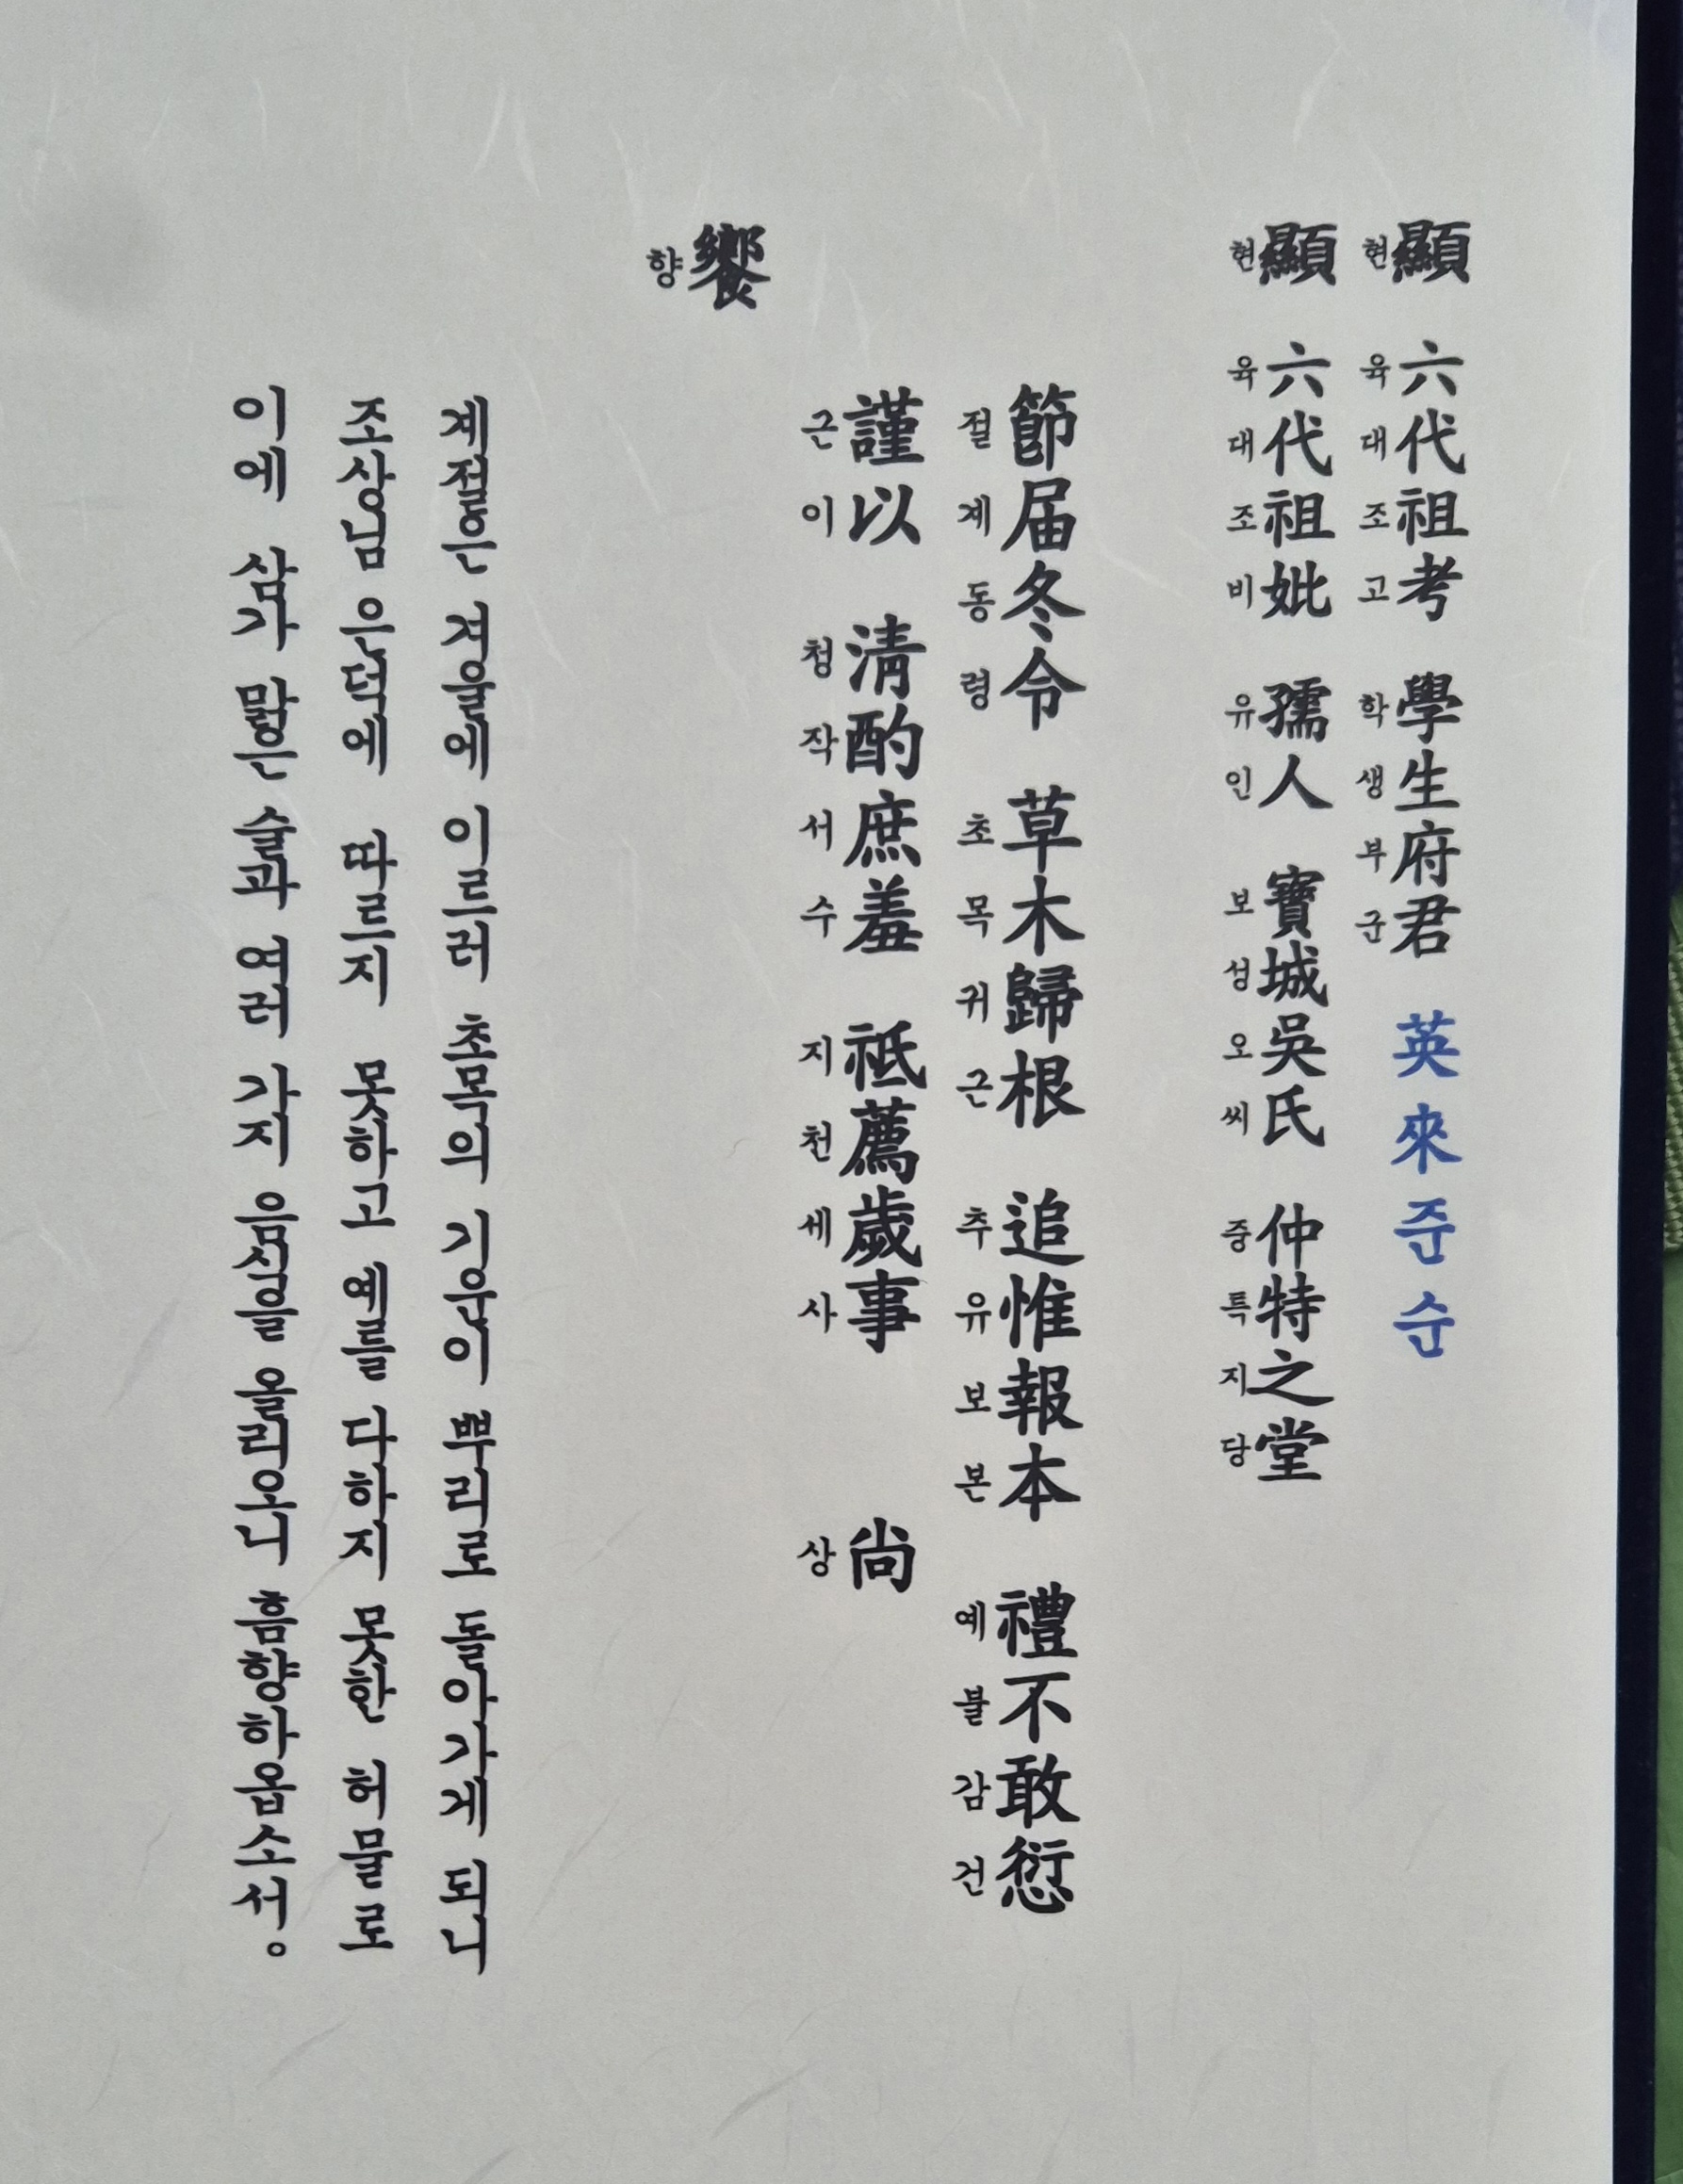 顯 六代祖考 學生府君 英來 준순
현 육대조고 학생부군
顯 六代祖妣 孺人 寶城吳氏 仲特之堂
현 육대조비 유인 보성오씨 중특지당
節届冬令 草木歸根 追惟報本 禮不敢愆
절계동령 초목귀근 추유보본 예불감건
謹以 淸酌庶羞 祗薦歲事 尙
근이 청작서수 지천세사 상
饗
향
계절은 겨울에 이르러 초목의 기운이 뿌리로 돌아가게 되니
조상님 은덕에 따르지 못하고 예를 다하지 못한 허물로
이에 삼가 맑은 술과 여러 가지 음식을 올리오니 흠향하옵소서。